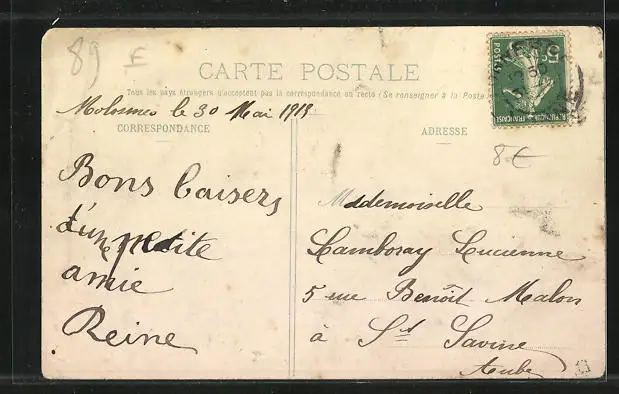 89 E
CARTE POSTALE
Tous les pays étrangers n'acceptent pas la correspondance au recto (Se renseigner à la Poste
le 30 Mai 1918
CORRESPONDANCE
ADRESSE
8€
Bons baisers
d'une petite
amie
Reine
Mademoiselle
Lamboray Lucienne
5 rue Benoît Malon
à St Savine
Aube
5c
POSTES
FRANÇAISE